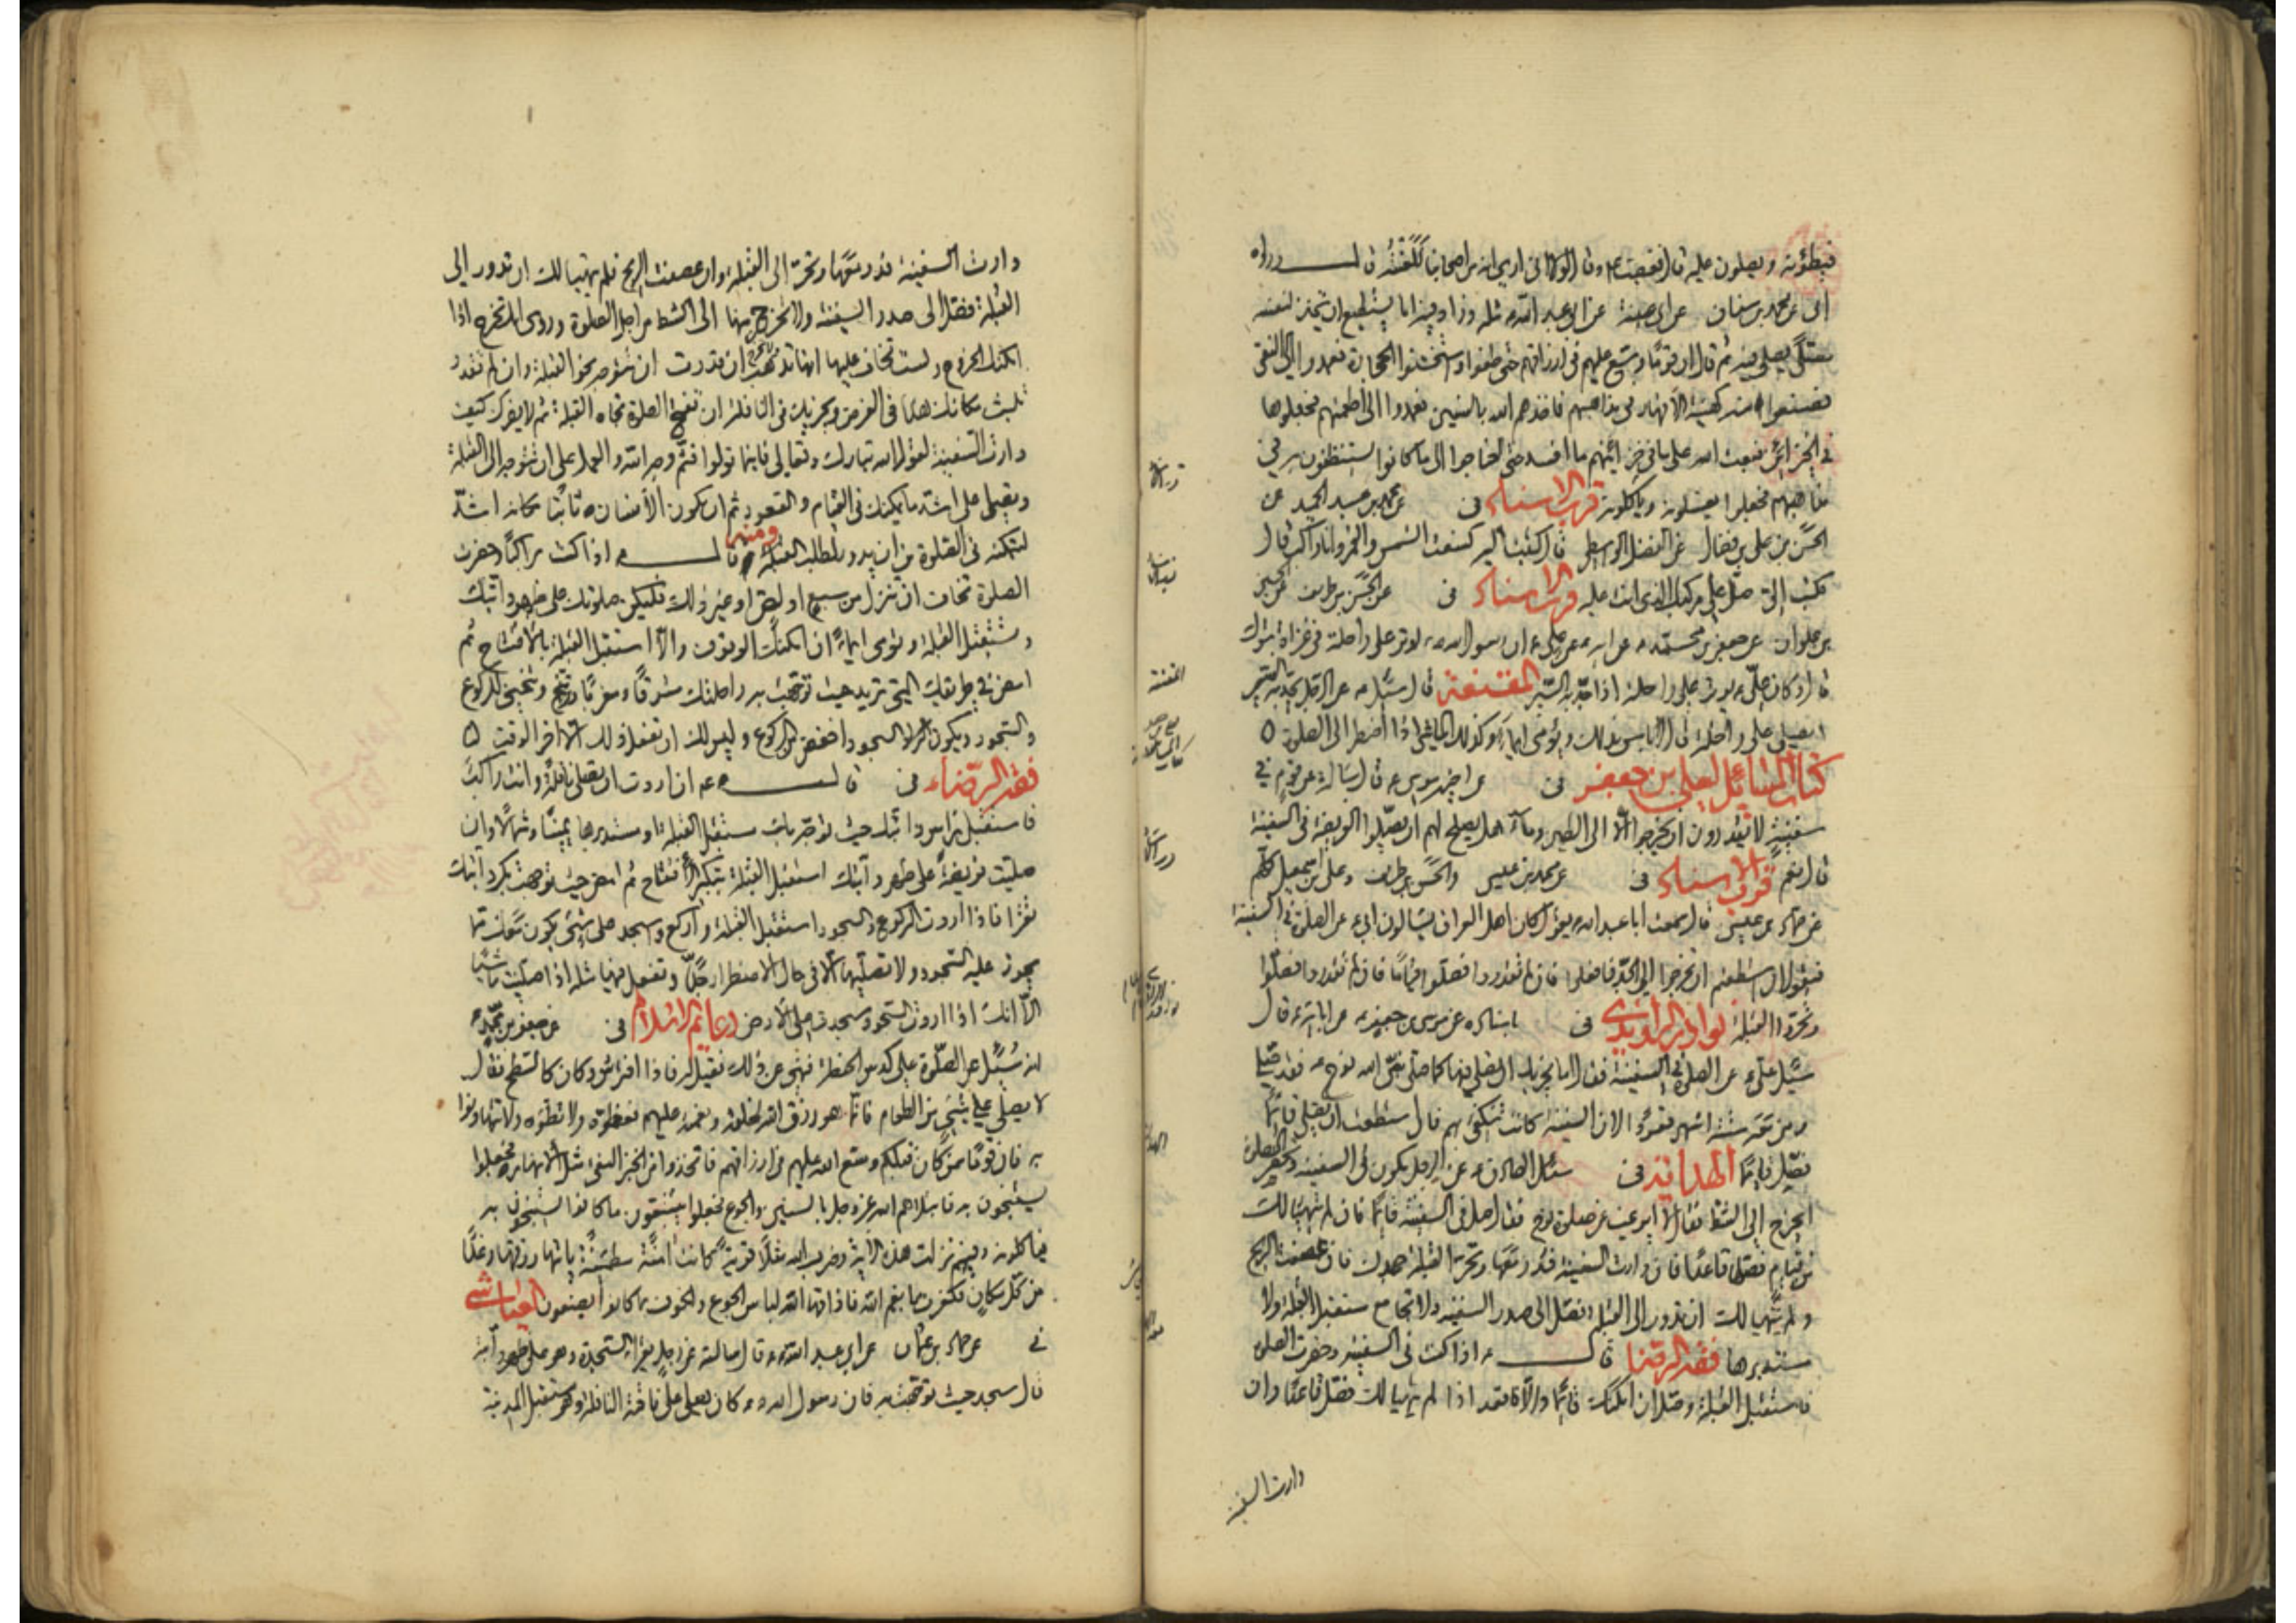 فيطؤنه ويصلون عليه قال فغضب ع وقال لولا اني ارى انه من اصحابنا للعنته قال ورواه
ابي عن محمد بن سنان عن ابي عيينة عن ابي عبد الله ع مثله وزاد فيه اما يستطيع ان يتخذ لنفسه
مصلى يصلي فيه ثم قال ان قوما وسع عليهم في ارزاقهم حتى طغوا فاستخشنوا الحجارة فعمدوا الى النقي
فصنعوا منه كهيئة الأفهار في مذاهبهم فاخذهم الله بالسنين فعمدوا الى اطعمتهم فجعلوها
في الخزائن فبعث الله على ما في خزائنهم ما افسده حتى احتاجوا الى ما كانوا يستنظفون به في
مذاهبهم فجعلوا يغسلونه وياكلونه قرب الاسناد في عن محمد بن عبد الحميد عن
الحسن بن علي بن فضال عن الفضل الواسطي قال كتبت اليه كسفت الشمس والقمر وانا راكب قال
فكتب إلي صل على مركبك الذي انت عليه قرب الاسناد في عن الحسن بن ظريف عن الحسين
بن علوان عن جعفر بن محمد عن ابيه عن علي ع ان رسول الله ص اوتر على راحلته في غزاة تبوك
قال وكان علي ع يوتر على راحلته اذا جد به السير المقنعة قال سئل ع عن الرجل يجد به السير
ايصلي على راحلته قال لا بأس بذلك ويؤمئ ايماء وكذلك الماشي اذا اضطر الى الصلوة
كتاب المسائل لعلي بن جعفر في عن اخيه موسى ع قال سالته عن قوم في
سفينة لا يقدرون ان يخرجوا الا الى الطين وماء هل يصلح لهم ان يصلوا الفريضة في السفينة
قال نعم قرب الاسناد في عن محمد بن عيسى والحسن بن ظريف وعلي بن اسمعيل كلهم
عن حماد بن عيسى قال سمعت ابا عبد الله ع يقول كان اهل العراق يسالون ابي ع عن الصلوة في السفينة
فيقول ان استطعتم ان تخرجوا الى الجد فافعلوا فان لم تقدروا فصلوا قياما فان لم تقدروا فصلوا
وتحروا القبلة نوادر الراوندي في باسناده عن موسى بن جعفر ع عن ابائه ع قال
سئل علي ع عن الصلوة في السفينة فقال اما يجزيك ان تصلي فيها كما صلى نبي الله نوح ع فقد صلى
ومن معه ستة اشهر قعودا لان السفينة كانت تنكفئ بهم فان استطعت ان تصلي قائما
فصل قائما الهداية في سئل الصادق ع عن الرجل يكون في السفينة وتحضر الصلوة
ايخرج الى الشط فقال لا ايرغب عن صلوة نوح فقال صل في السفينة قائما فان لم يتهيأ لك
من قيام فصلها قاعدا فان دارت السفينة فدر معها وتحر القبلة جهدك فان عصفت الريح
ولم يتهيا لك ان تدور الى القبلة فصل الى صدر السفينة ولا تجامع مستقبل القبلة ولا
مستدبرها فقه الرضا قال ع اذا كنت في السفينة وحضرت الصلوة
فاستقبل القبلة وصل ان امكنك قائما والا فاقعد اذا لم يتهيا لك فصل قاعدا وان
دارت السفينة
دارت السفينة فدر معها وتحر الى القبلة وان عصفت الريح فلم يتهيا لك ان تدور الى
القبلة فصل الى صدر السفينة ولا تخرج منها الى الشط من اجل الصلوة وروي انك تخرج اذا
امكنك الخروج ولست تخاف عليها انها تذهب ان قدرت ان توجه نحو القبلة وان لم تقدر
تلبث مكانك هذا في الفرض ويجزيك في النافلة ان تفتتح الصلوة تجاه القبلة ثم لا يضرك كيف
دارت السفينة لقول الله تبارك وتعالى فاينما تولوا فثم وجه الله والعمل على ان تتوجه الى القبلة
وتصلي على اشد ما يمكنك في القيام والقعود ثم ان يكون الانسان ثابتا مكانه اشد
لتمكنه في الصلوة من ان يدور لطلب القبلة ومنه قال ع اذا كنت راكبا وحضرت
الصلوة تخاف ان تنزل من سبع او لص او غير ذلك فليكن صلوتك على ظهر دابتك
وتستقبل القبلة وتومئ ايماء ان امكنك الوقوف والا استقبل القبلة بالافتتاح ثم
امض في طريقك التي تريد حيث توجهت به راحلتك مشرقا ومغربا وتنحني للركوع
والسجود ويكون السجود اخفض من الركوع وليس لك ان تفعل ذلك الا اخر الوقت
فقه الرضا ع في قال ع ان اردت ان تصلي نافلة وانت راكب
فاستقبل براس دابتك حيث توجه بك مستقبل القبلة او مستدبرها يمينا وشمالا وان
صليت فريضة على ظهر دابتك استقبل القبلة بتكبير الافتتاح ثم امض حيث توجهت بك دابتك
تقرا فاذا اردت الركوع والسجود استقبل القبلة واركع واسجد على شيء يكون معك مما
يجوز عليه السجود ولا تصليها الا في حال الاضطرار جدا وتفعل فيها مثله اذا صليت ماشيا
الا انك اذا اردت السجود سجدت على الارض دعائم الاسلام في عن جعفر بن محمد ع
انه سئل عن الصلوة على كدس الحنطة فنهى عن ذلك فقيل له فاذا افترش وكان كالسطح فقال
لا يصلي على شيء من الطعام فانما هو رزق الله لخلقه ونعمته عليهم فعظموه ولا تطؤه ولا تتهاونوا
به فان قوما ممن كان قبلكم وسع الله عليهم في ارزاقهم فاتخذوا من الخبز النقي مثل الافهار فجعلوا
يستنجون به فابتلاهم الله عز وجل بالسنين والجوع فجعلوا يتتبعون ما كانوا يستنجون به
فياكلونه وفيهم نزلت هذه الآية وضرب الله مثلا قرية كانت امنة مطمئنة ياتيها رزقها رغدا
من كل مكان فكفرت بانعم الله فاذاقها الله لباس الجوع والخوف بما كانوا يصنعون العياشي
في عن حماد بن عثمان عن ابي عبد الله ع قال سالته عن رجل يقرأ السجدة وهو على ظهر دابته
قال يسجد حيث توجهت به فان رسول الله ص كان يصلي على ناقته النافلة وهو مستقبل المدينة